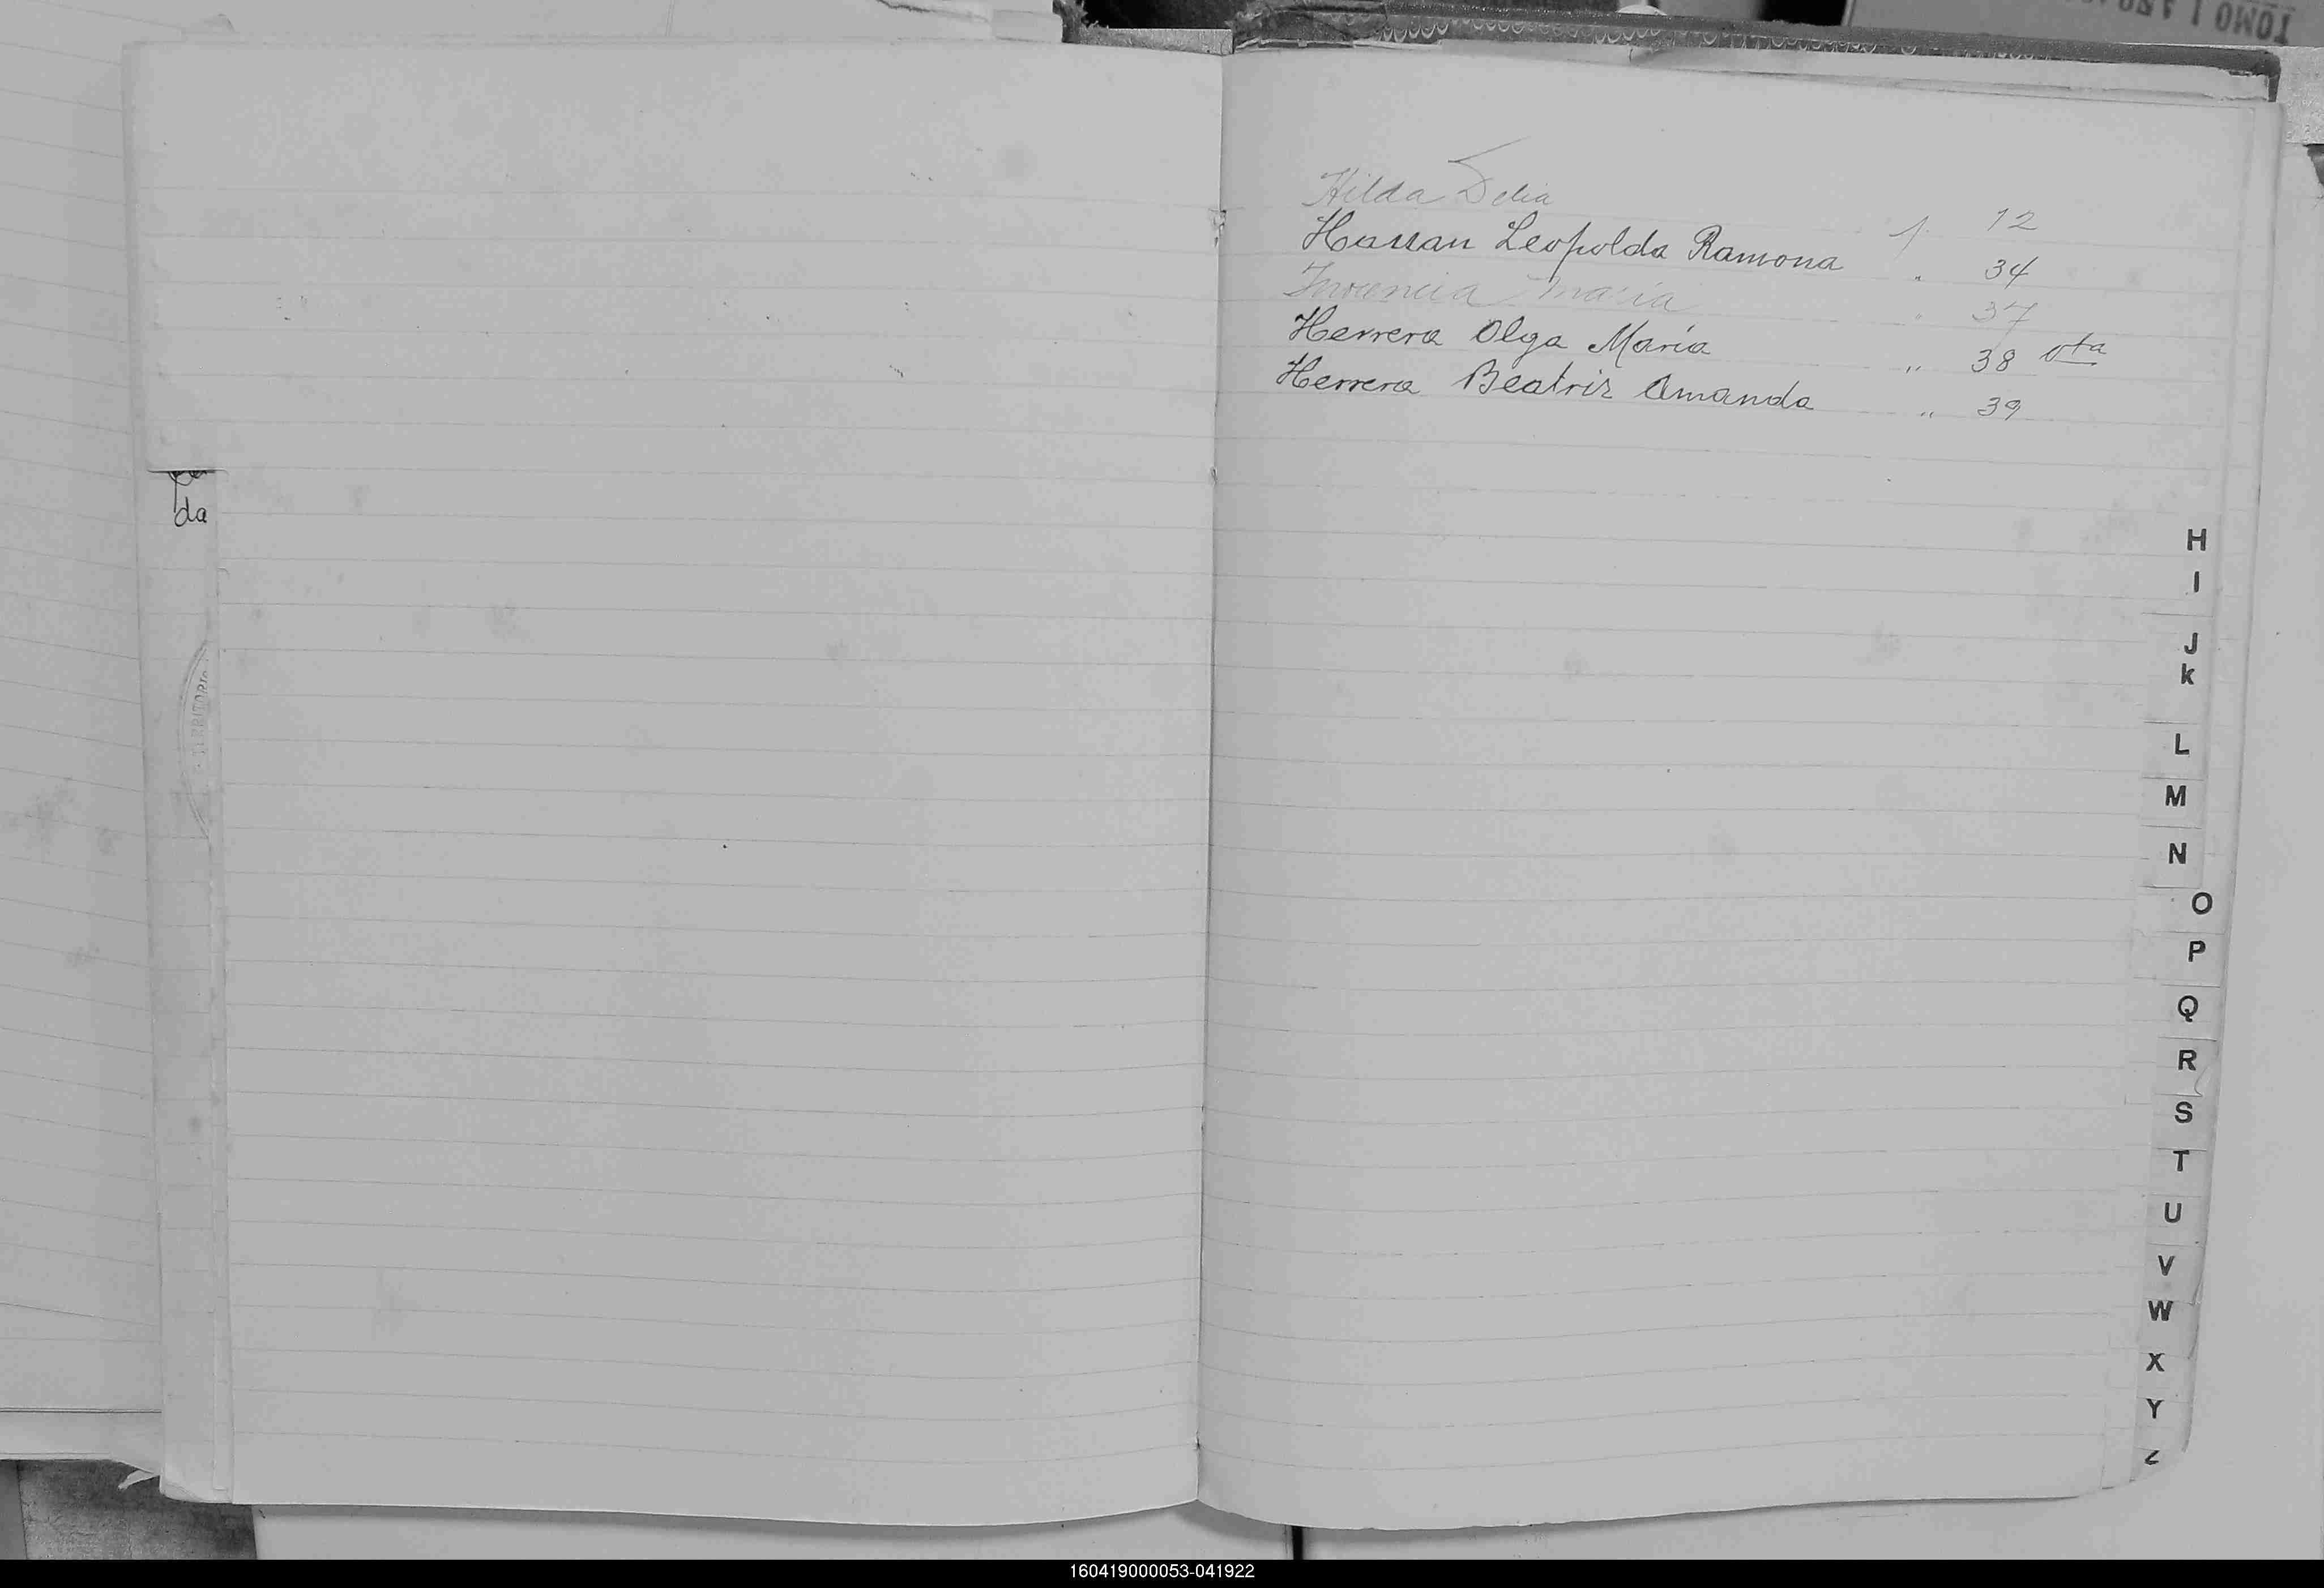 TOMO I
Hilda Delia f. 12
Hassan Leopolda Ramona " 34
Inocencia Maria " 37
Herrera Olga María " 38 vta
Herrera Beatriz Amanda " 39
da
TERRITORIO
H
I
J
k
L
M
N
O
P
Q
R
S
T
U
V
W
X
Y
Z
160419000053-041922